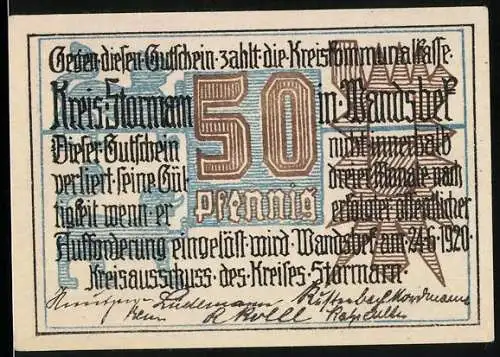 Gegen diesen Gutschein zahlt die Kreiskommunalkasse
Kreis Stormarn 50 in Wandsbek
Dieser Gutschein nicht innerhalb
verliert seine Gül dreier Monate nach
tigkeit wenn er Pfennig erfolgter öffentlicher
Aufforderung eingelöst wird. Wandsbek am 24.6.1920.
Kreisausschuss des Kreises Stormarn.